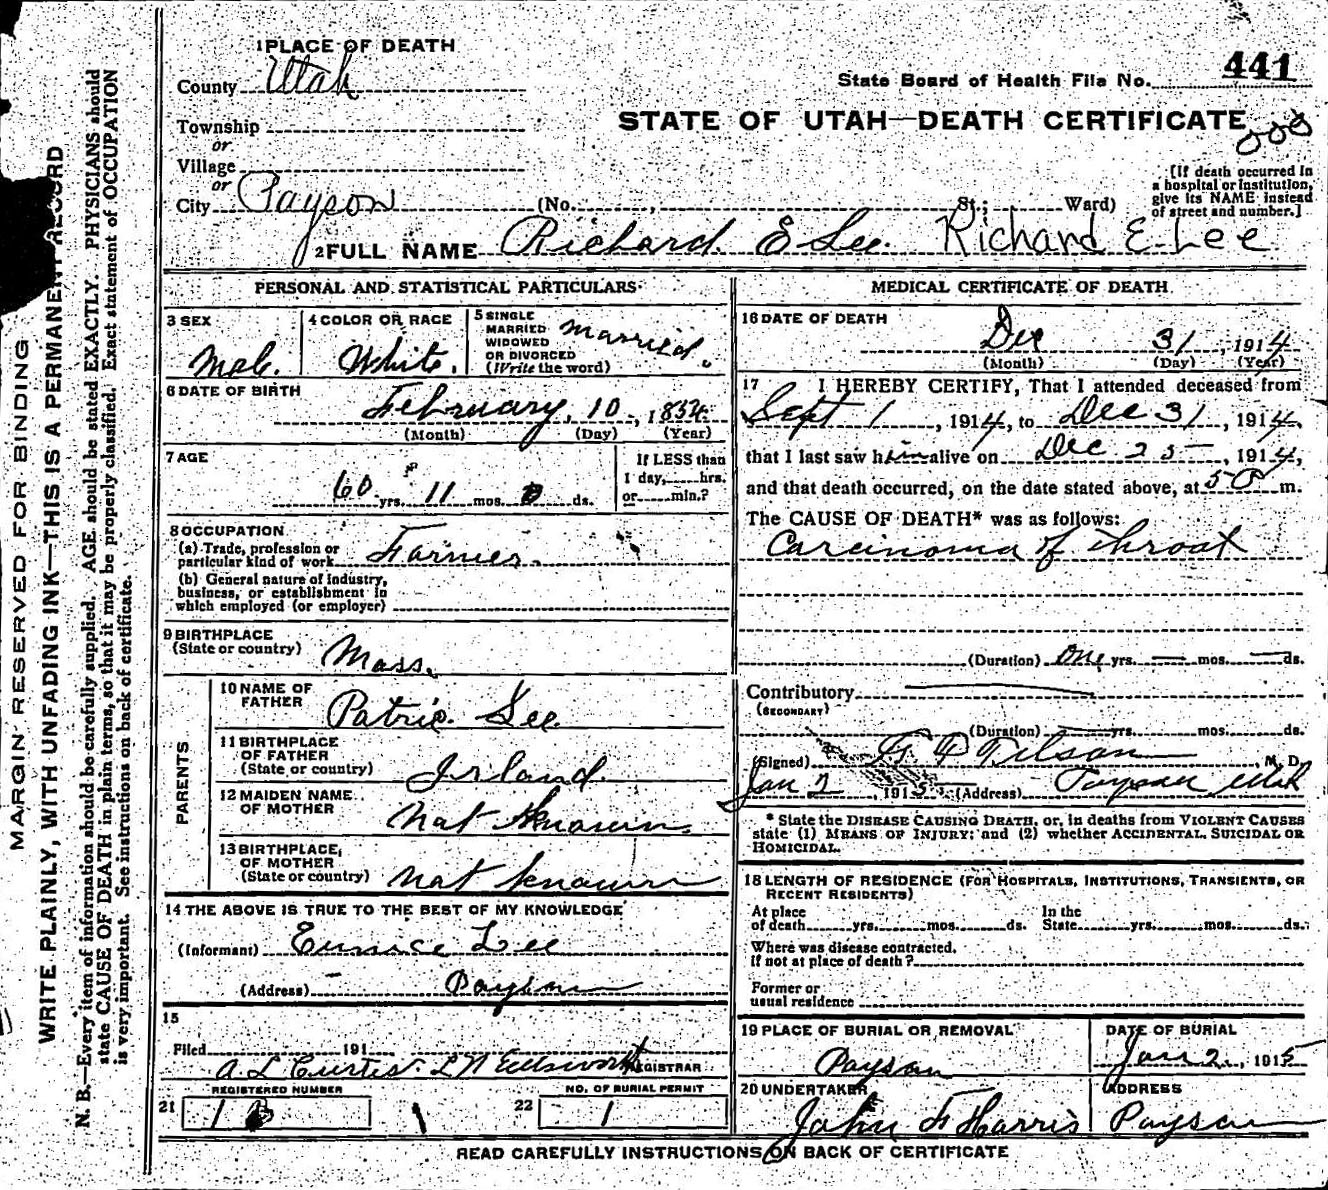 1 PLACE OF DEATH
County Utah
State Board of Health File No. 441
Township
STATE OF UTAH—DEATH CERTIFICATE
or
Village
or
City Payson (No. , St.; Ward)
[If death occurred in a hospital or institution, give its NAME instead of street and number.]
2 FULL NAME Richard E Lee. Richard E Lee
PERSONAL AND STATISTICAL PARTICULARS
3 SEX
Male.
4 COLOR OR RACE
White.
5 SINGLE
MARRIED
WIDOWED
OR DIVORCED
(Write the word)
Married.
6 DATE OF BIRTH
February, 10, 1854
(Month) (Day) (Year)
7 AGE
60 yrs. 11 mos. ds.
If LESS than
1 day, hrs.
or min.?
8 OCCUPATION
(a) Trade, profession or
particular kind of work Farmer.
(b) General nature of industry,
business, or establishment in
which employed (or employer)
9 BIRTHPLACE
(State or country) Mass.
PARENTS
10 NAME OF
FATHER Patric Lee
11 BIRTHPLACE
OF FATHER
(State or country) Irland.
12 MAIDEN NAME
OF MOTHER Not Known
13 BIRTHPLACE
OF MOTHER
(State or country) Not Known
14 THE ABOVE IS TRUE TO THE BEST OF MY KNOWLEDGE
(Informant) Eunice Lee
(Address) Payson
15
Filed 191
A L Curtis. L N Ellsworth REGISTRAR
REGISTERED NUMBER
21 1
NO. OF BURIAL PERMIT
22 1
MEDICAL CERTIFICATE OF DEATH
16 DATE OF DEATH
Dec 31, 1914
(Month) (Day) (Year)
17 I HEREBY CERTIFY, That I attended deceased from
Sept 1, 1914, to Dec 31, 1914,
that I last saw him alive on Dec 25, 1914,
and that death occurred, on the date stated above, at 5 P m.
The CAUSE OF DEATH* was as follows:
Carcinoma of Throat
(Duration) One yrs. — mos. — ds.
Contributory
(SECONDARY)
(Duration) yrs. mos. ds.
(Signed) Tilson, M. D.
Jan 2, 1915 (Address) Payson Utah
* State the DISEASE CAUSING DEATH, or, in deaths from VIOLENT CAUSES
state (1) MEANS OF INJURY; and (2) whether ACCIDENTAL, SUICIDAL OR
HOMICIDAL.
18 LENGTH OF RESIDENCE (FOR HOSPITALS, INSTITUTIONS, TRANSIENTS, OR
RECENT RESIDENTS)
At place
of death yrs. mos. ds.
In the
State yrs. mos. ds.
Where was disease contracted.
If not at place of death?
Former or
usual residence
19 PLACE OF BURIAL OR REMOVAL
Payson
DATE OF BURIAL
Jan 2, 1915
20 UNDERTAKER
John F Harris
ADDRESS
Payson
READ CAREFULLY INSTRUCTIONS ON BACK OF CERTIFICATE
MARGIN RESERVED FOR BINDING
WRITE PLAINLY, WITH UNFADING INK—THIS IS A PERMANENT RECORD
N. B.—Every item of information should be carefully supplied. AGE should be stated EXACTLY. PHYSICIANS should
state CAUSE OF DEATH in plain terms, so that it may be properly classified. Exact statement of OCCUPATION
is very important. See instructions on back of certificate.